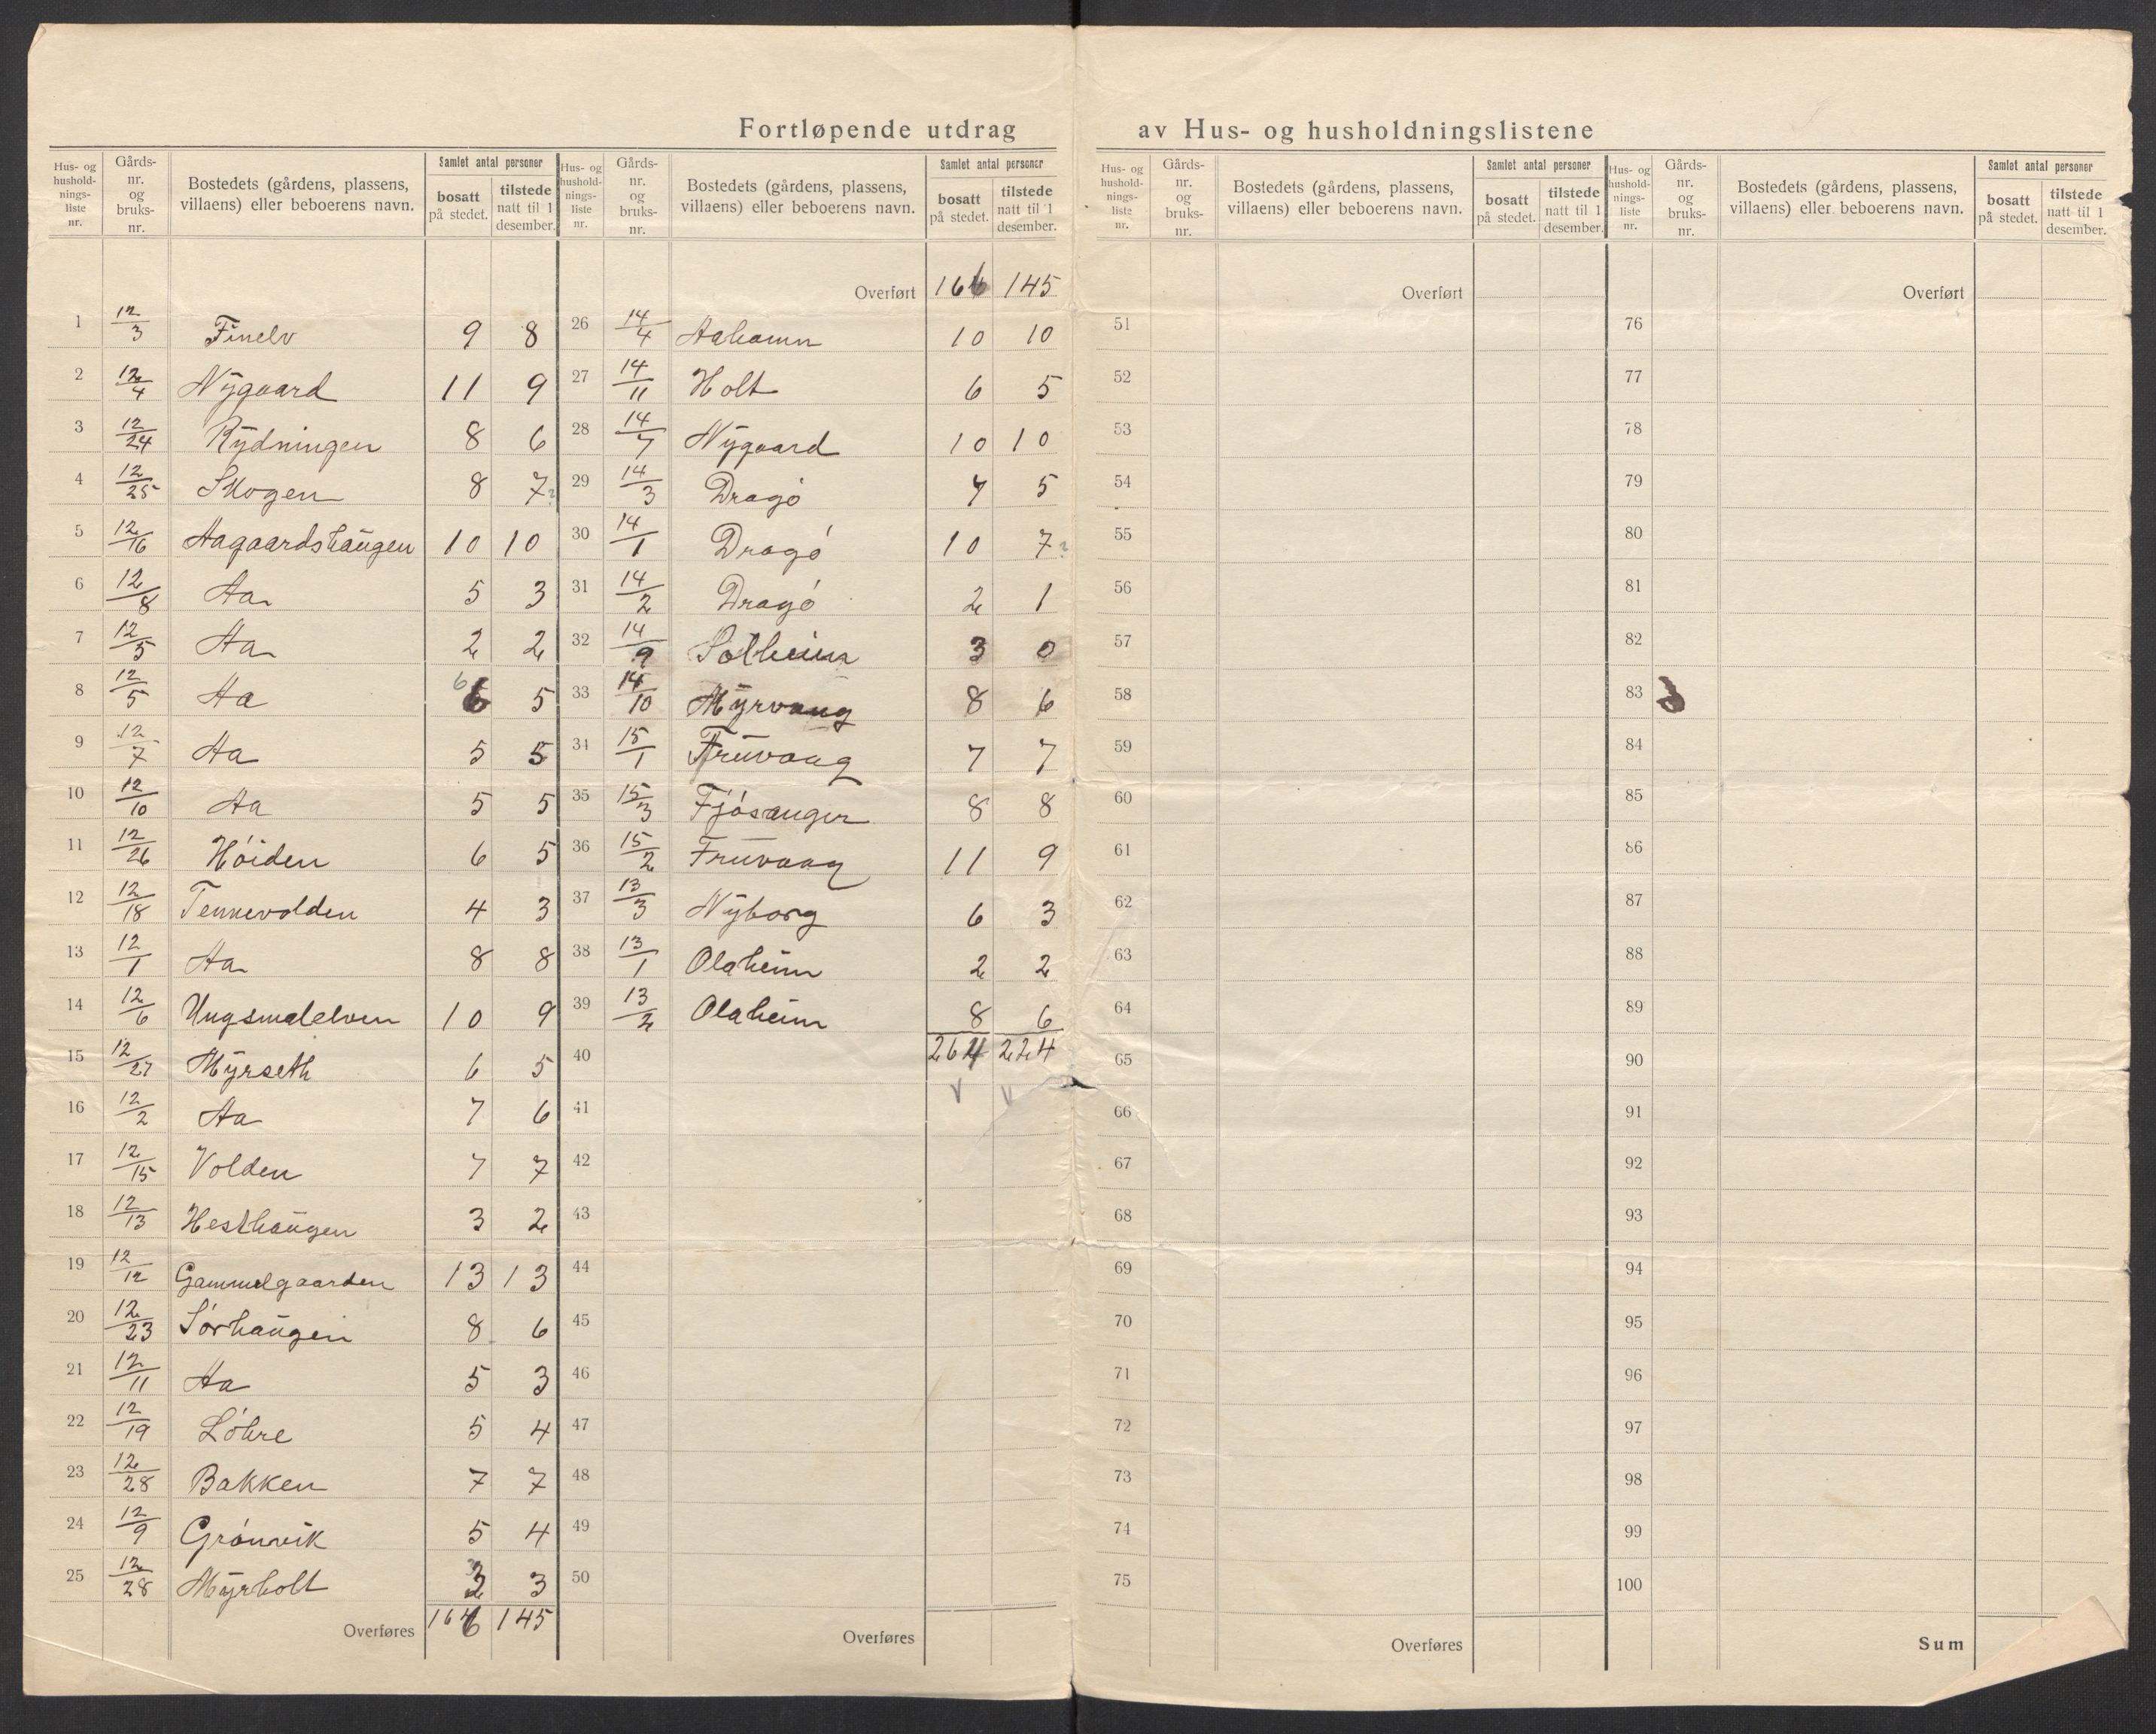 Fortløpende utdrag av Hus- og husholdningslistene
Hus- og hushold-nings-liste nr. Gårds-nr. og bruks-nr. Bostedets (gårdens, plassens, villaens) eller beboerens navn. Samlet antal personer bosatt på stedet. tilstede natt til 1 desember.
1 12/3 Finelv 9 8
2 12/4 Nygaard 11 9
3 12/24 Rydningen 8 6
4 12/25 Skogen 8 7
5 12/16 Aagaardshaugen 10 10
6 12/8 Aa 5 3
7 12/5 Aa 2 2
8 12/5 Aa 6 5
9 12/7 Aa 5 5
10 12/10 Aa 5 5
11 12/26 Höiden 6 5
12 12/18 Tennevolden 4 3
13 12/1 Aa 8 8
14 12/6 Ungsmalelven 10 9
15 12/27 Myrseth 6 5
16 12/2 Aa 7 6
17 12/15 Volden 7 7
18 12/13 Hesthaugen 3 2
19 12/12 Gammelgaarden 13 13
20 12/23 Sörhaugen 8 6
21 12/11 Aa 5 3
22 12/19 Löhre 5 4
23 12/28 Bakken 7 7
24 12/9 Grönvik 5 4
25 12/28 Myrholt 3 3
Overføres 166 145
Hus- og hushold-nings-liste nr. Gårds-nr. og bruks-nr. Bostedets (gårdens, plassens, villaens) eller beboerens navn. Samlet antal personer bosatt på stedet. tilstede natt til 1 desember.
Overført 166 145
26 14/4 Aahamn 10 10
27 14/11 Holt 6 5
28 14/7 Nygaard 10 10
29 14/3 Dragö 7 5
30 14/1 Dragö 10 7
31 14/2 Dragö 2 1
32 14/9 Solheim 3 0
33 14/10 Myrvang 8 6
34 15/1 Truvaag 7 7
35 15/3 Fjösanger 8 8
36 15/2 Truvaag 11 9
37 13/3 Nyborg 6 3
38 13/1 Olaheim 2 2
39 13/2 Olaheim 8 6
40 264 224
41
42
43
44
45
46
47
48
49
50
Overføres
Hus- og hushold-nings-liste nr. Gårds-nr. og bruks-nr. Bostedets (gårdens, plassens, villaens) eller beboerens navn. Samlet antal personer bosatt på stedet. tilstede natt til 1 desember.
Overført
51
52
53
54
55
56
57
58
59
60
61
62
63
64
65
66
67
68
69
70
71
72
73
74
75
Overføres
Hus- og hushold-nings-liste nr. Gårds-nr. og bruks-nr. Bostedets (gårdens, plassens, villaens) eller beboerens navn. Samlet antal personer bosatt på stedet. tilstede natt til 1 desember.
Overført
76
77
78
79
80
81
82
83
84
85
86
87
88
89
90
91
92
93
94
95
96
97
98
99
100
Sum